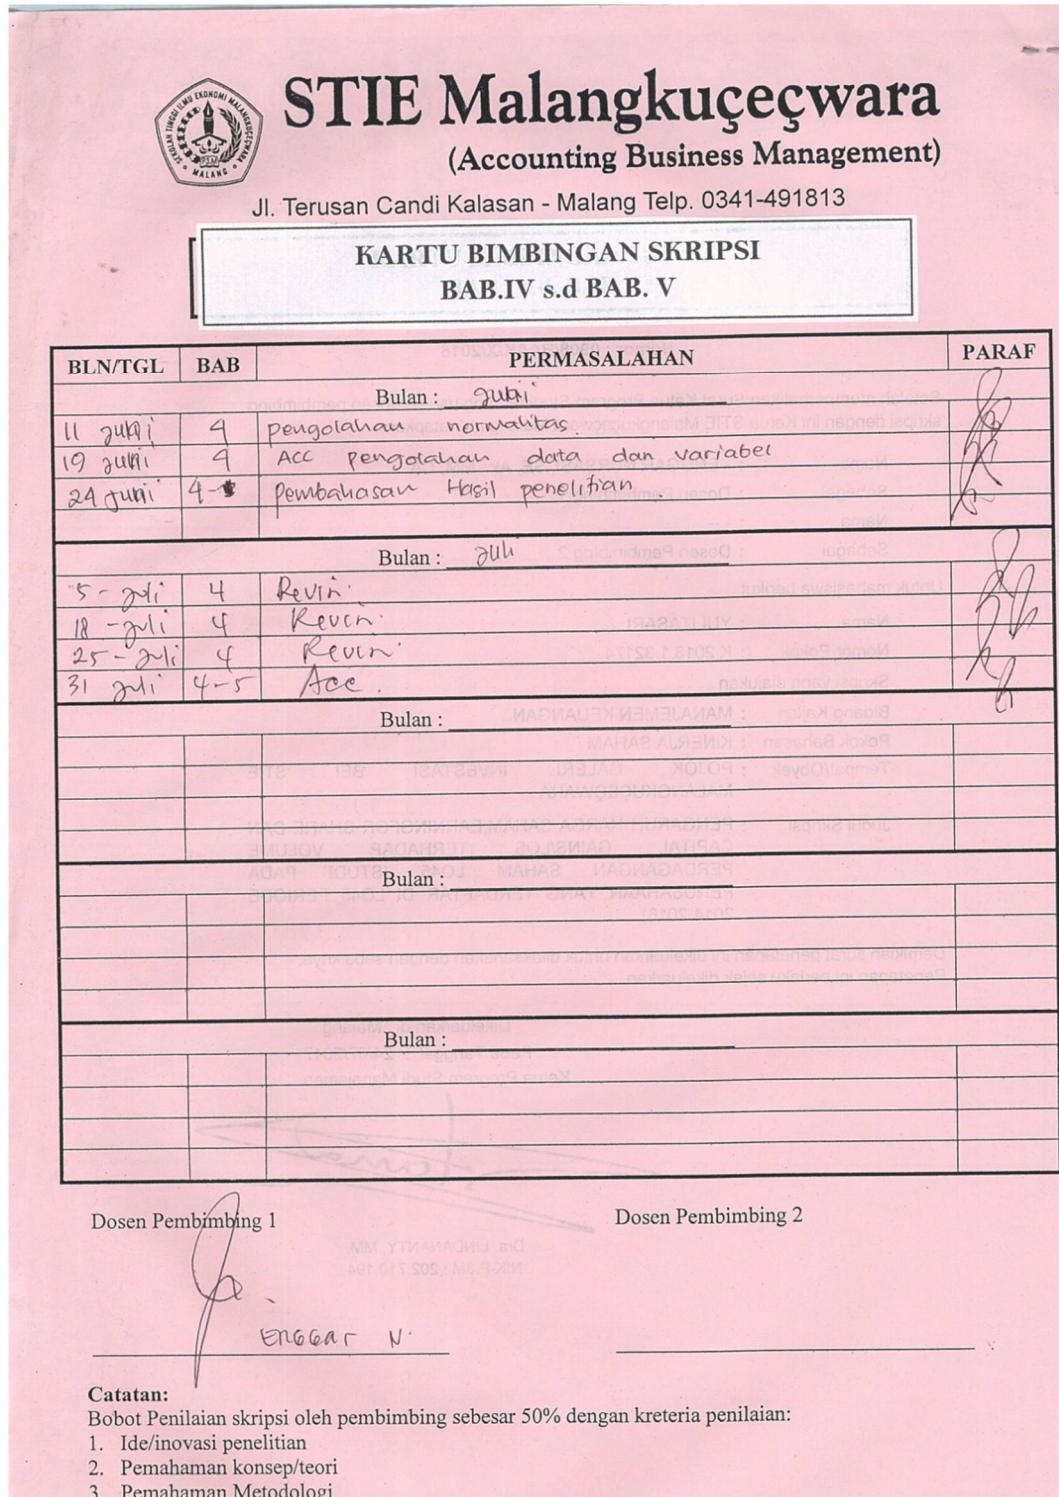 SEKOLAH TINGGI ILMU EKONOMI MALANGKUÇEÇWARA
MALANG
STIE Malangkuçeçwara
(Accounting Business Management)
Jl. Terusan Candi Kalasan - Malang Telp. 0341-491813
KARTU BIMBINGAN SKRIPSI
BAB.IV s.d BAB. V
BLN/TGL BAB PERMASALAHAN PARAF
Bulan : Juni
11 Juni 4 pengolahan normalitas.
19 Juni 4 Acc pengolahan data dan variabel
24 Juni 4- pembahasan Hasil penelitian.
Bulan : Juli
5 - Juli 4 Revisi.
18 - Juli 4 Revisi.
25 - Juli 4 Revisi.
31 Juli 4-5 Acc.
Bulan :
Bulan :
Bulan :
Dosen Pembimbing 1 Dosen Pembimbing 2
Enggar N.
Catatan:
Bobot Penilaian skripsi oleh pembimbing sebesar 50% dengan kreteria penilaian:
1. Ide/inovasi penelitian
2. Pemahaman konsep/teori
3. Pemahaman Metodologi